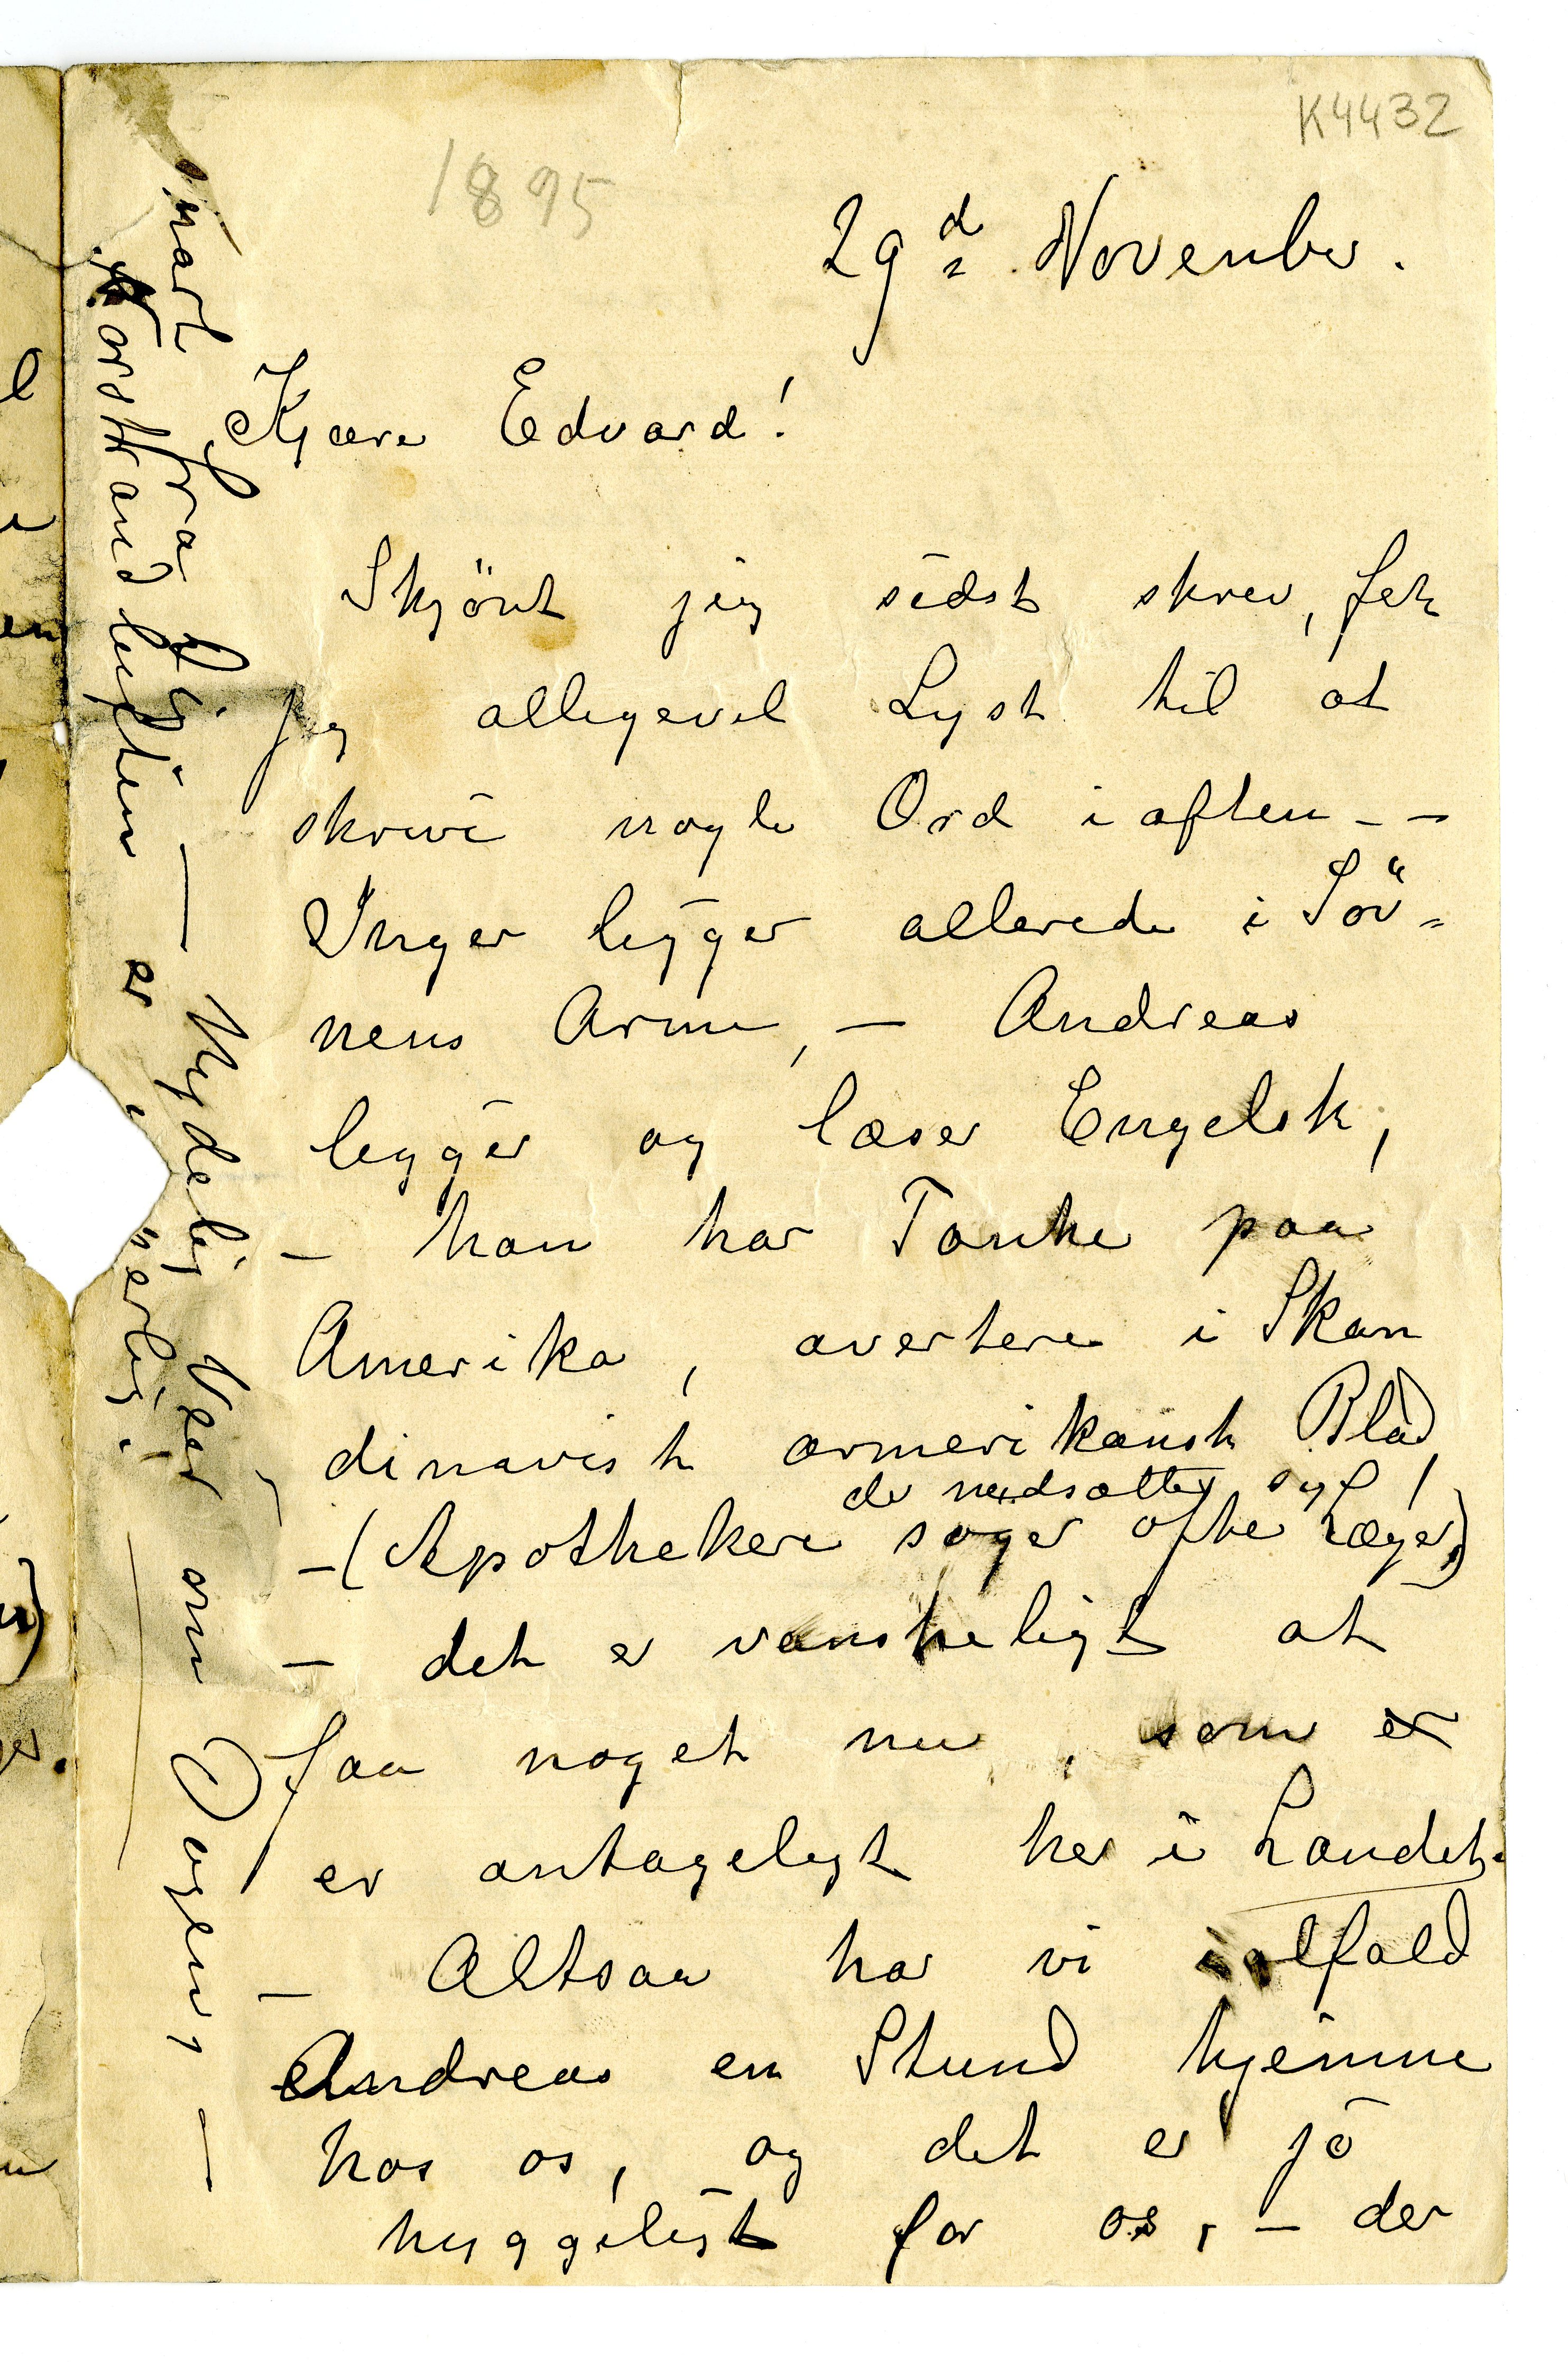 K4432
1895
29d November.
Kjære Edvard!
Skjönt jeg sidst skrev, fek
jeg alligevel Lyst til at
skrive nogle Ord iaften - -
Inger ligger allerede i Söv-
nens Arme, — Andreas
ligger og læser Engelsk,
- han har Tanke paa
Amerika, avertere i Skan
dinavisk amerikansk Blad,
de nedsætter sig!
-(Apothekere søger ofte Læger,)
- det er vanskeligt at
faa noget nu, som er
er antageligt her i Landet.
- Altsaa har vi ialfald
Andreas en Stund hjemme
hos os, og det er jo
hyggeligt for os, - der
snart fra Dig — Nydelig Veir om Dagen, —
Karstkand luften er